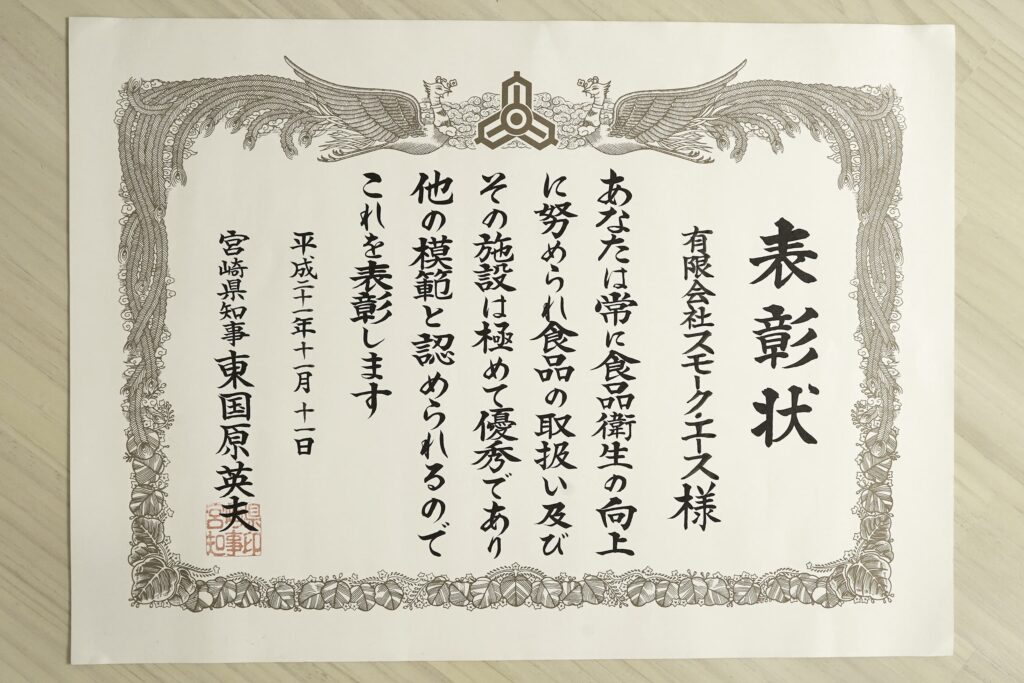 表彰状
有限会社スモーク・エース様
あなたは常に食品衛生の向上
に努められ食品の取扱い及び
その施設は極めて優秀であり
他の模範と認められるので
これを表彰します
平成二十一年十一月十一日
宮崎県知事 東国原英夫
宮崎県知事印